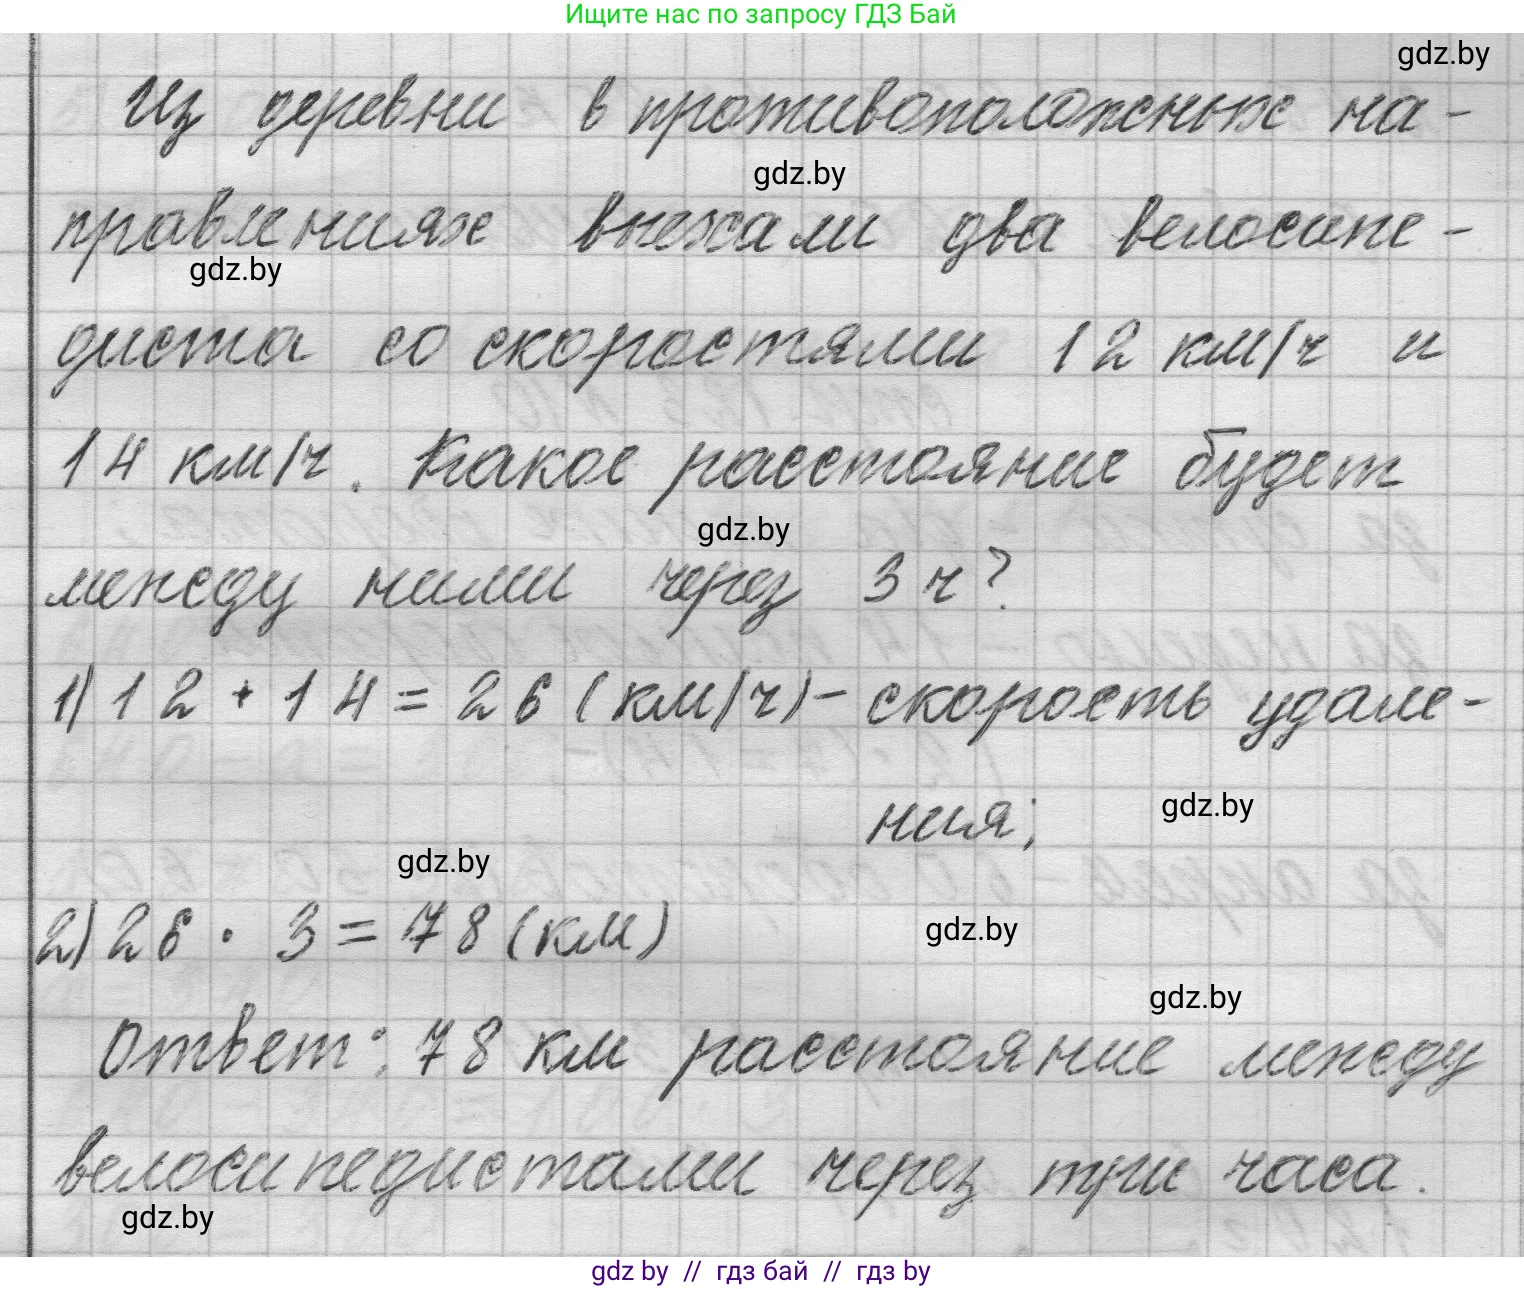 Ищите нас по запросу ГДЗ Бай
gdz.by
Из деревни в противоположных на-
gdz.by
правлениях выехали два велосипе-
gdz.by
диста со скоростями 12 км/ч и
14 км/ч. Какое расстояние будет
gdz.by
между ними через 3 ч?
1) 12 + 14 = 26 (км/ч) - скорость удале-
ния;
gdz.by
gdz.by
2) 26 · 3 = 78 (км)
gdz.by
gdz.by
Ответ: 78 км расстояние между
велосипедистами через три часа.
gdz.by
gdz by // гдз бай // гдз by